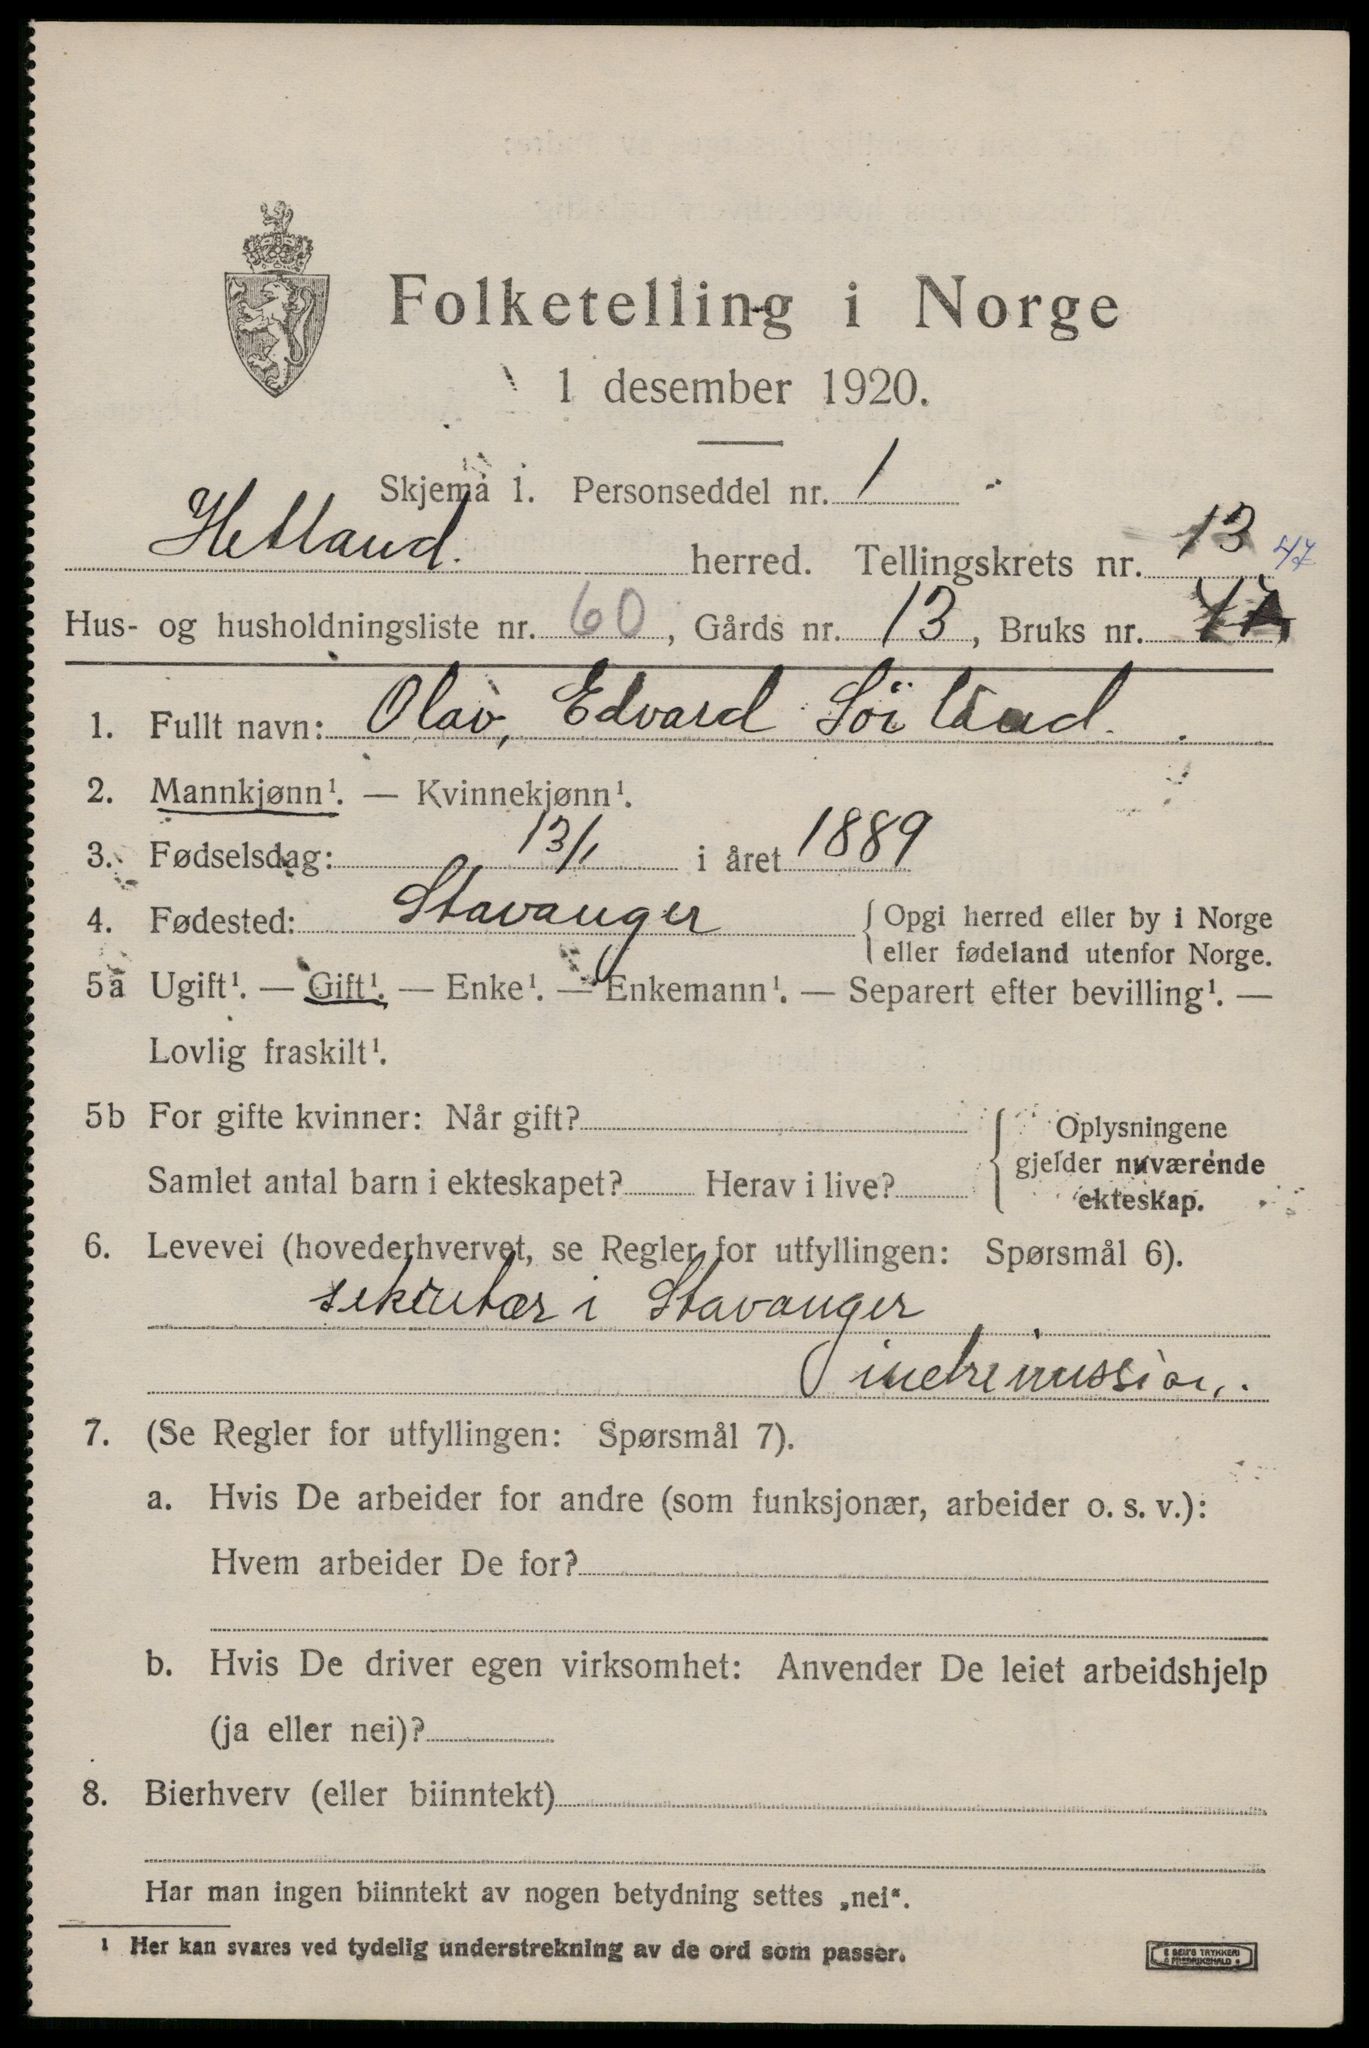 Folketelling i Norge
1 desember 1920.
Skjema 1. Personseddel nr. 1
Hetland. herred. Tellingskrets nr. 13 47
Hus- og husholdningsliste nr. 60, Gårds nr. 13, Bruks nr.
1. Fullt navn: Olav, Edvard Söiland.
2. Mannkjønn¹. — Kvinnekjønn¹.
3. Fødselsdag: 13/1 i året 1889
4. Fødested: Stavanger { Opgi herred eller by i Norge
eller fødeland utenfor Norge.
5a Ugift¹. — Gift¹. — Enke¹. — Enkemann¹. — Separert efter bevilling¹. —
Lovlig fraskilt¹.
5b For gifte kvinner: Når gift? { Oplysningene
gjelder nuværende
Samlet antal barn i ekteskapet? Herav i live? ekteskap.
6. Levevei (hovederhvervet, se Regler for utfyllingen: Spørsmål 6).
sekretær i Stavanger
indremission.
7. (Se Regler for utfyllingen: Spørsmål 7).
a. Hvis De arbeider for andre (som funksjonær, arbeider o. s. v.):
Hvem arbeider De for?
b. Hvis De driver egen virksomhet: Anvender De leiet arbeidshjelp
(ja eller nei)?
8. Bierhverv (eller biinntekt)
Har man ingen biinntekt av nogen betydning settes „nei“.
¹ Her kan svares ved tydelig understrekning av de ord som passer.
E SEM'S TRYKKERI
FREDRIKSHALD